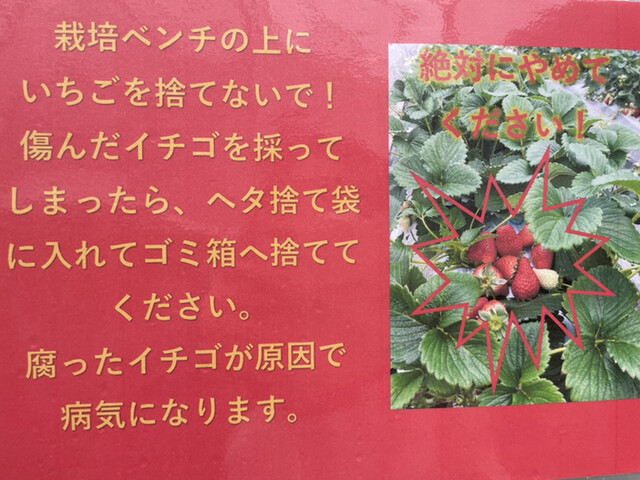 栽培ベンチの上に
いちごを捨てないで！
傷んだイチゴを採って
しまったら、ヘタ捨て袋
に入れてゴミ箱へ捨てて
ください。
腐ったイチゴが原因で
病気になります。
絶対にやめて
ください！